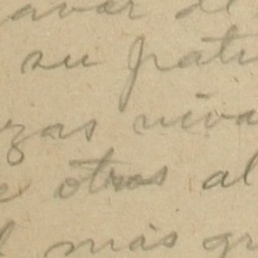 avor de
su patr
zas viva
e otros al
l más gr